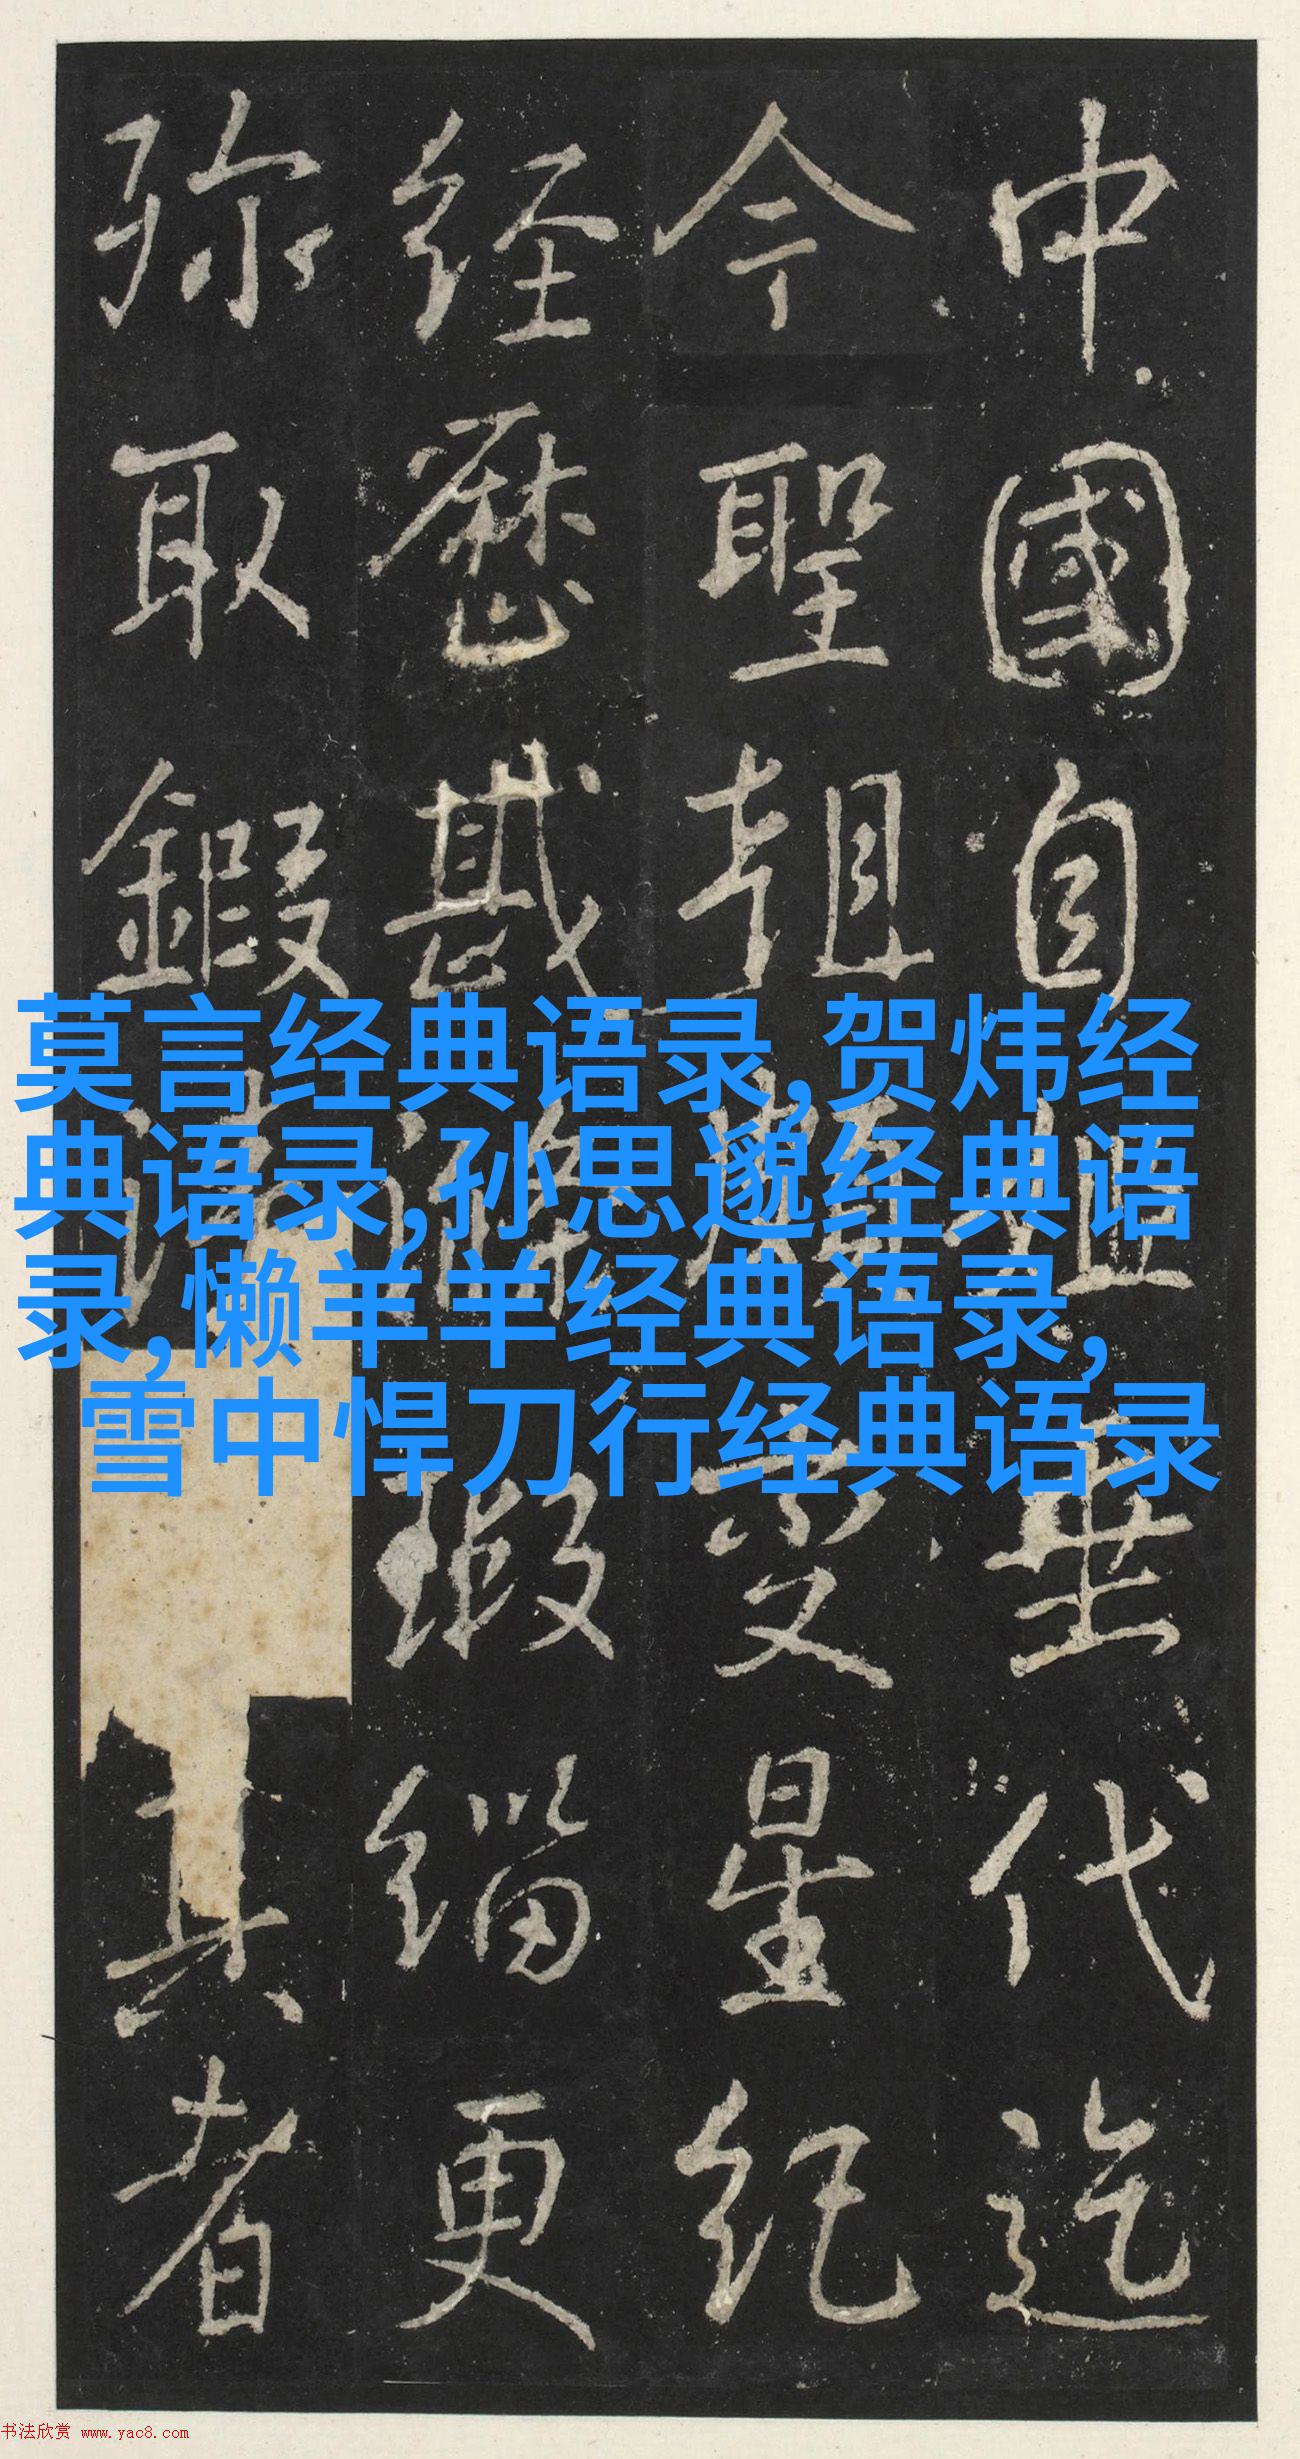 中國自代迄
今聖朝受星紀
经歷瑕缁更
弥取真者
莫言经典语录,贺炜经
典语录,孙思邈经典语
录,懒羊羊经典语录,
雪中悍刀行经典语录
书法欣赏 www.yac8.com